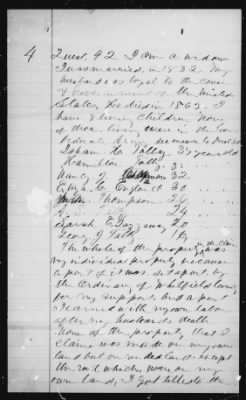 4
Quest. 42 I am a widow
I was married, in 1832. My
husband was loyal to the cause
of Government of the United
States, He died in 1863. I
have 8 living children. None
of them living were in the Con
federate Army
Talley 37 years old
Hamilton Talley 35
Nancy J. 32
Eliza C. England 30
Thompson 26
24
Sarah E. 20
Geo. J Talley 18
The whole of the property in the claim
my individual property because
a part of it was set apart by
the Ordinary of Whitfield County
for my support and a part
I earned with my own labor
after my husbands death
None of the property that I
claim was made on my own
land but on rented land except
the rails which were on my
own land, I got title to the